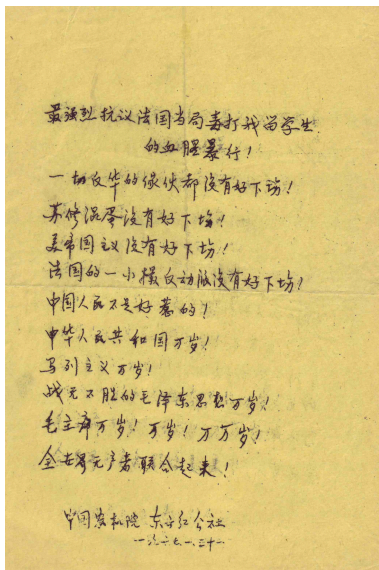 最强烈抗议法国当局毒打我留学生
的血腥暴行!
一切反华的傢伙都没有好下场!
苏修混蛋没有好下场!
美帝国主义没有好下场!
法国的一小撮反动派没有好下场!
中国人民不是好惹的!
中华人民共和国万岁!
马列主义万岁!
战无不胜的毛泽东思想万岁!
毛主席万岁!万岁!万万岁!
全世界无产者联合起来!
中国农机院 东方红公社
一九六七.一.三十一